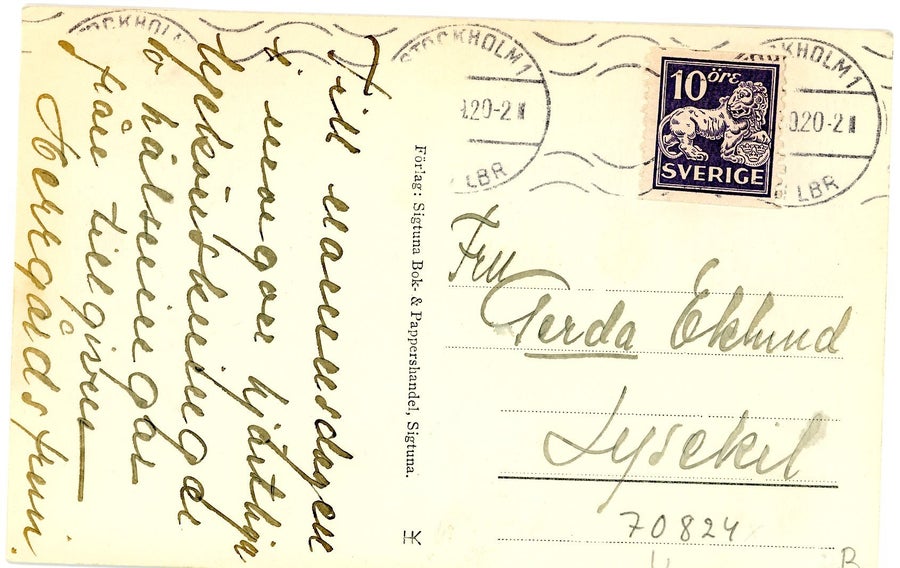 Till namnsdagen
många hjärtliga
lyckönskningar
o hälsningar
från tillgivne
Förlag: Sigtuna Bok- & Pappershandel, Sigtuna.
STOCKHOLM 1
.20-2
LBR
10 öre
SVERIGE
STOCKHOLM 1
.20-2
LBR
Fru
Gerda Eklund
Lysekil
70824
B